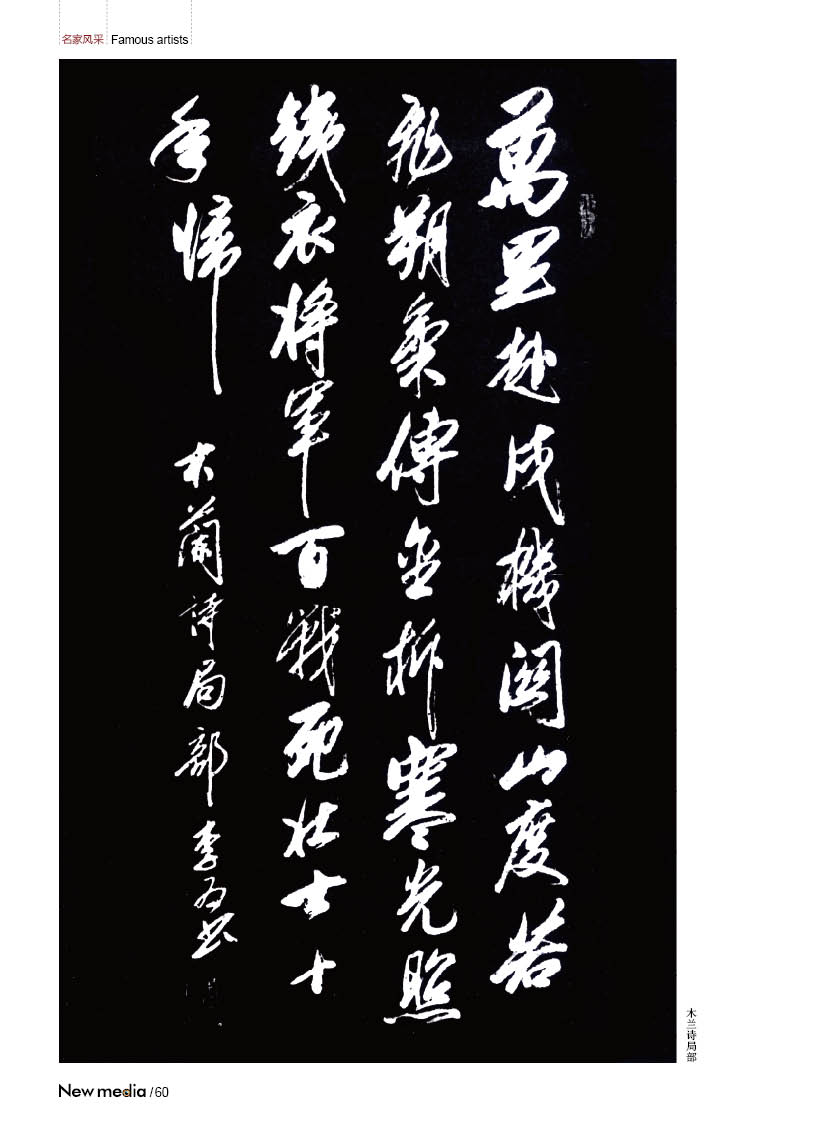 名家风采 Famous artists
萬里赴戎機關山度若
飛朔氣傳金柝寒光照
鐵衣将軍百戰死壯士十
年歸
木蘭詩局部 李 书
木兰诗局部
New media /60